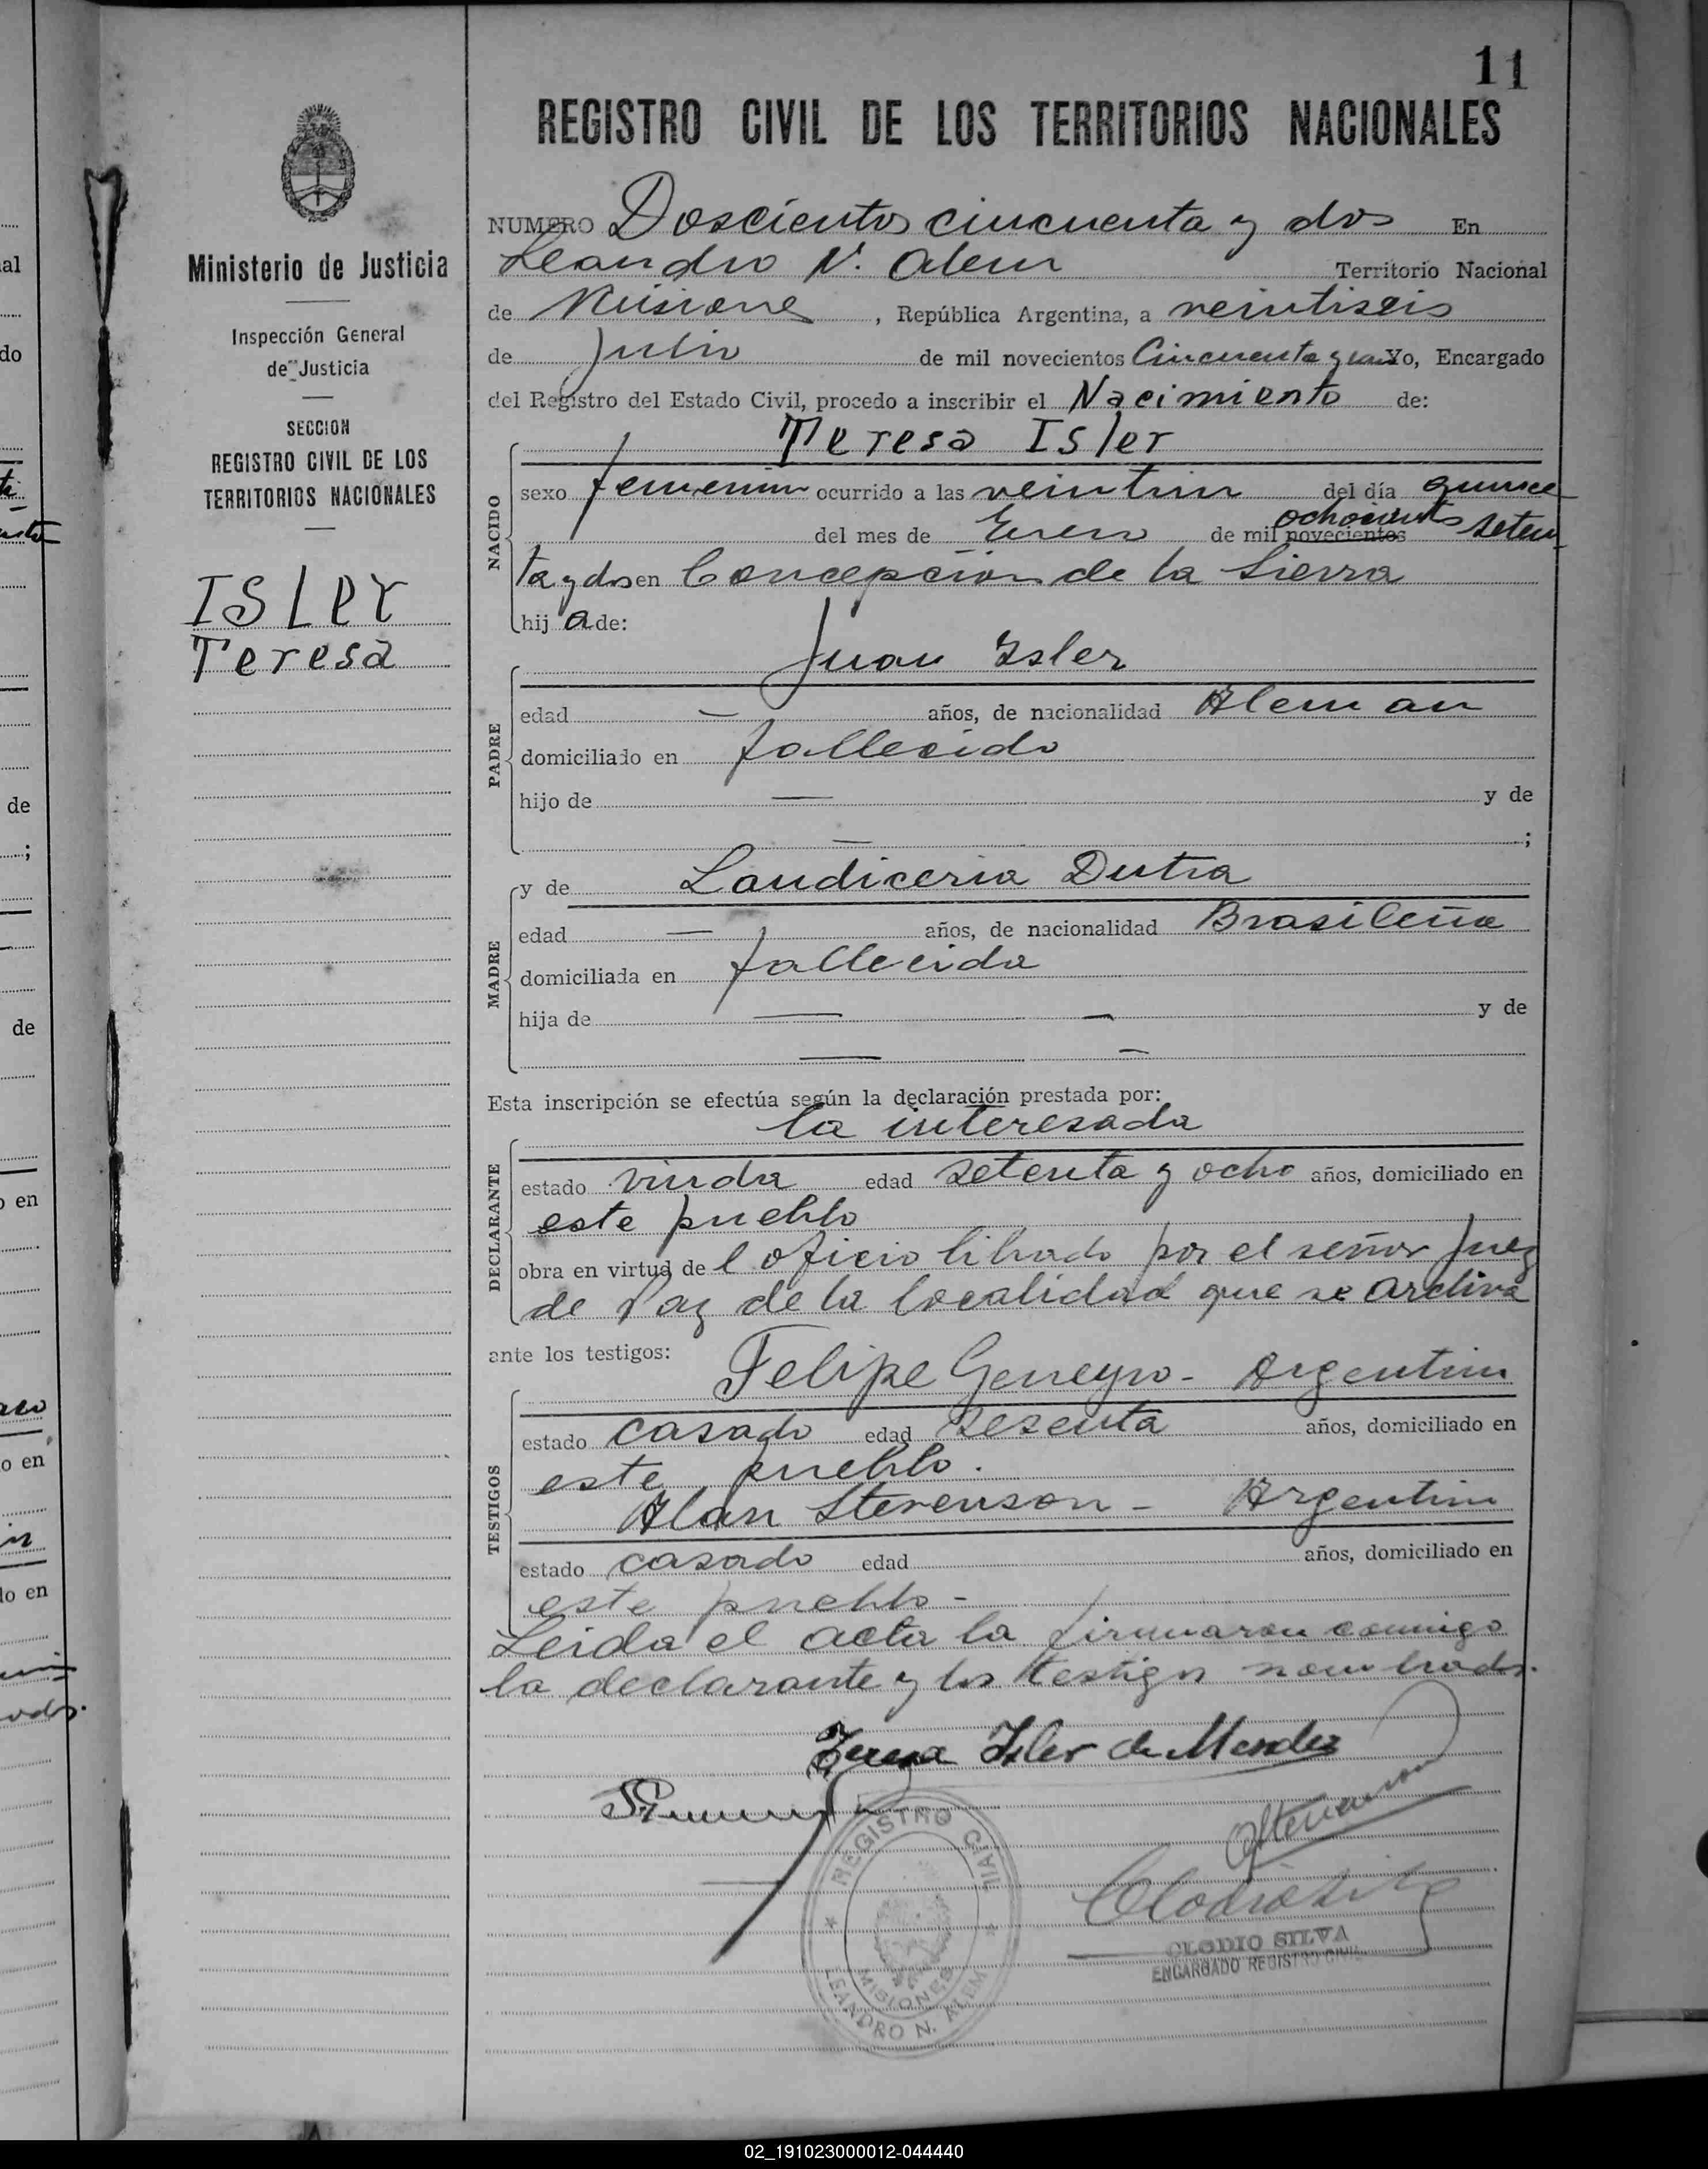 11
REGISTRO CIVIL DE LOS TERRITORIOS NACIONALES
Ministerio de Justicia
Inspección General
de Justicia
SECCION
REGISTRO CIVIL DE LOS
TERRITORIOS NACIONALES
ISLER
Teresa
NUMERO Doscientos cincuenta y dos En
Leandro N. Alem Territorio Nacional
de Misiones, República Argentina, a veintiseis
de Julio de mil novecientos Cincuenta y Yo, Encargado
del Registro del Estado Civil, procedo a inscribir el Nacimiento de:
Teresa Isler
NACIDO
sexo femenino ocurrido a las veintiun del día quince
ochocientos
del mes de Enero de mil novecientos seten
ta y dos en Concepcion de la Sierra
hij a de:
Juan Isler
PADRE
edad — años, de nacionalidad Aleman
domiciliado en fallecido
hijo de — y de
— ;
y de Laudiceria Dutra
MADRE
edad — años, de nacionalidad Brasileña
domiciliada en fallecida
hija de — — y de
— —
Esta inscripción se efectúa según la declaración prestada por:
la interesada
DECLARANTE
estado viuda edad setenta y ocho años, domiciliado en
este pueblo
obra en virtud de l oficio librado por el señor Juez
de Paz de la localidad que se archiva
ante los testigos:
Felipe Geneyro - Argentino
TESTIGOS
estado casado edad sesenta años, domiciliado en
este pueblo.
Alan Stevenson - Argentino
estado casado edad años, domiciliado en
este pueblo -
Leida el acta la firmaron conmigo
la declarante y los testigos nombrados.
Teresa Isler de Mendez
Stevenson
REGISTRO CIVIL
MISIONES
LEANDRO N. ALEM
Clodio Silva
CLODIO SILVA
ENCARGADO REGISTRO CIVIL
al
do
de
;
de
o en
o en
do en
02_191023000012-044440